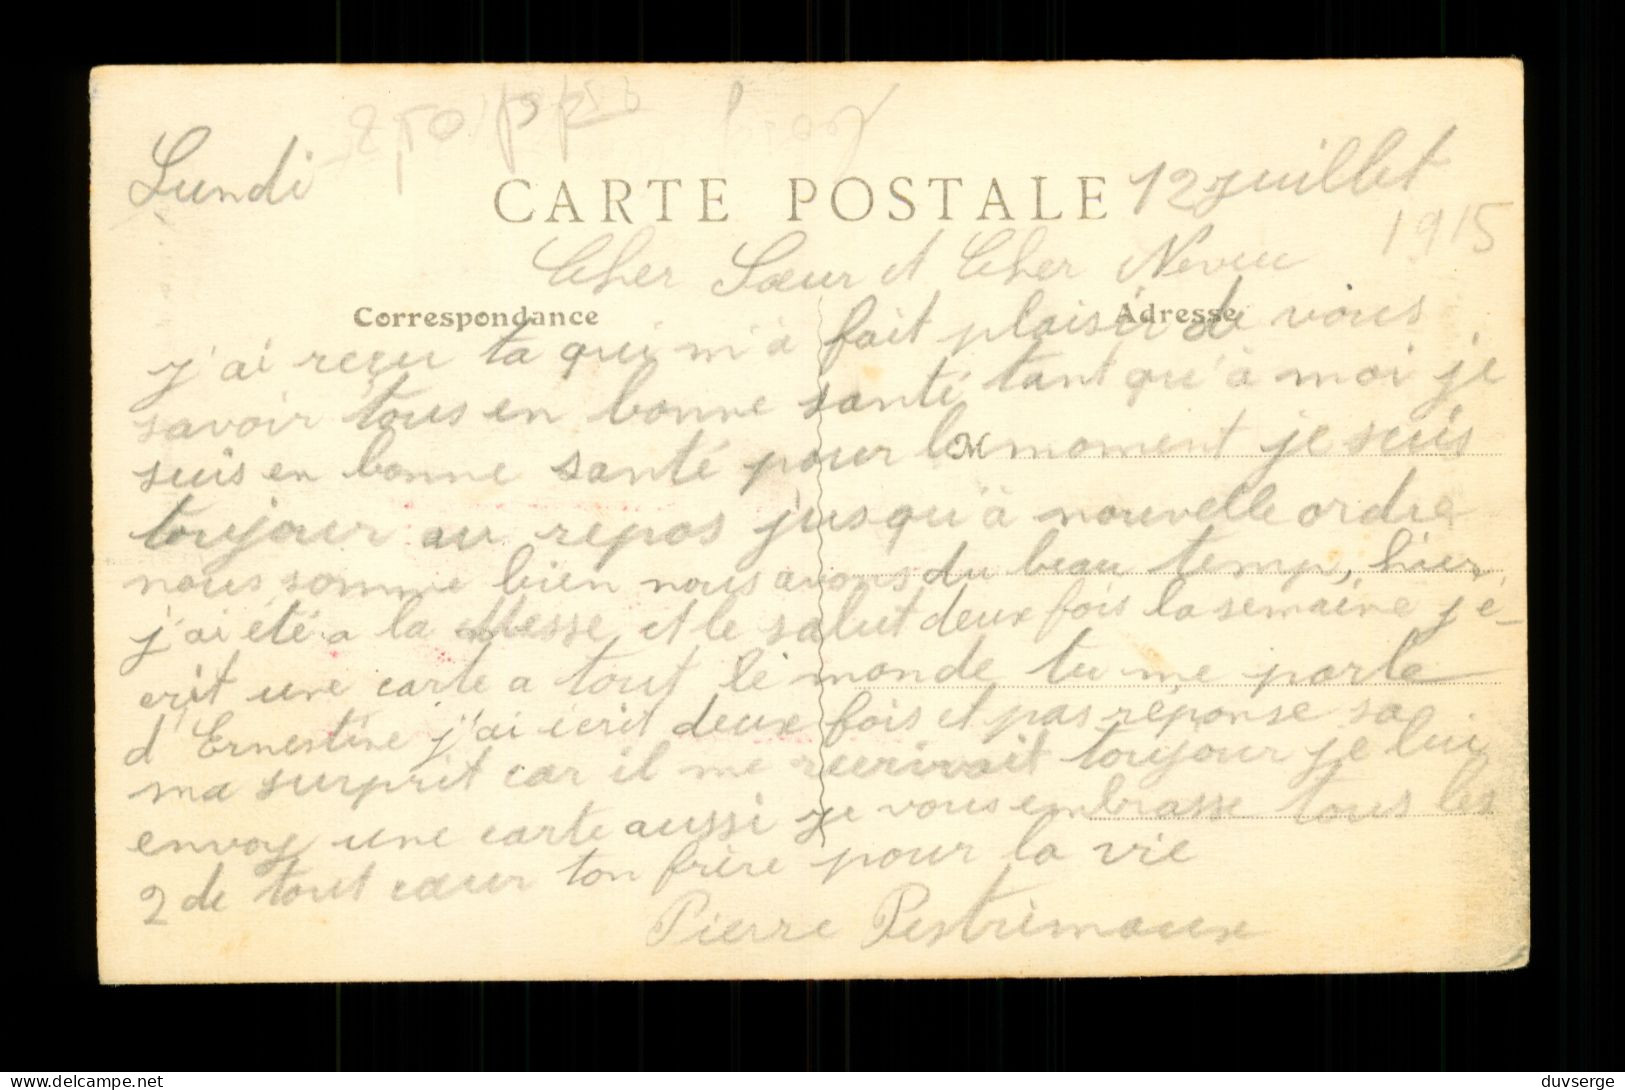 Lundi
CARTE POSTALE
12 juillet
1915
Cher Sœur et Cher Neveu
Correspondance
Adresse
j'ai reçu ta qui m'a fait plaisir de vous
savoir tous en bonne santé tant qu'à moi je
suis en bonne santé pour le moment je suis
M
toujour au repos jusqu'à nouvelle ordre
nous somme bien nous avons du beau temp, hier,
j'ai été a la Messe et le salut deux fois la semaine j'é-
crit une carte a tout le monde tu me parle
d'Ernestine j'ai écrit deux fois et pas réponse sa
ma surprit car il me recrivait toujour je lui
envoy une carte aussi je vous embrasse tous les
2 de tout cœur ton frère pour la vie
Pierre Pestrimaux
delcampe.net
duvserge